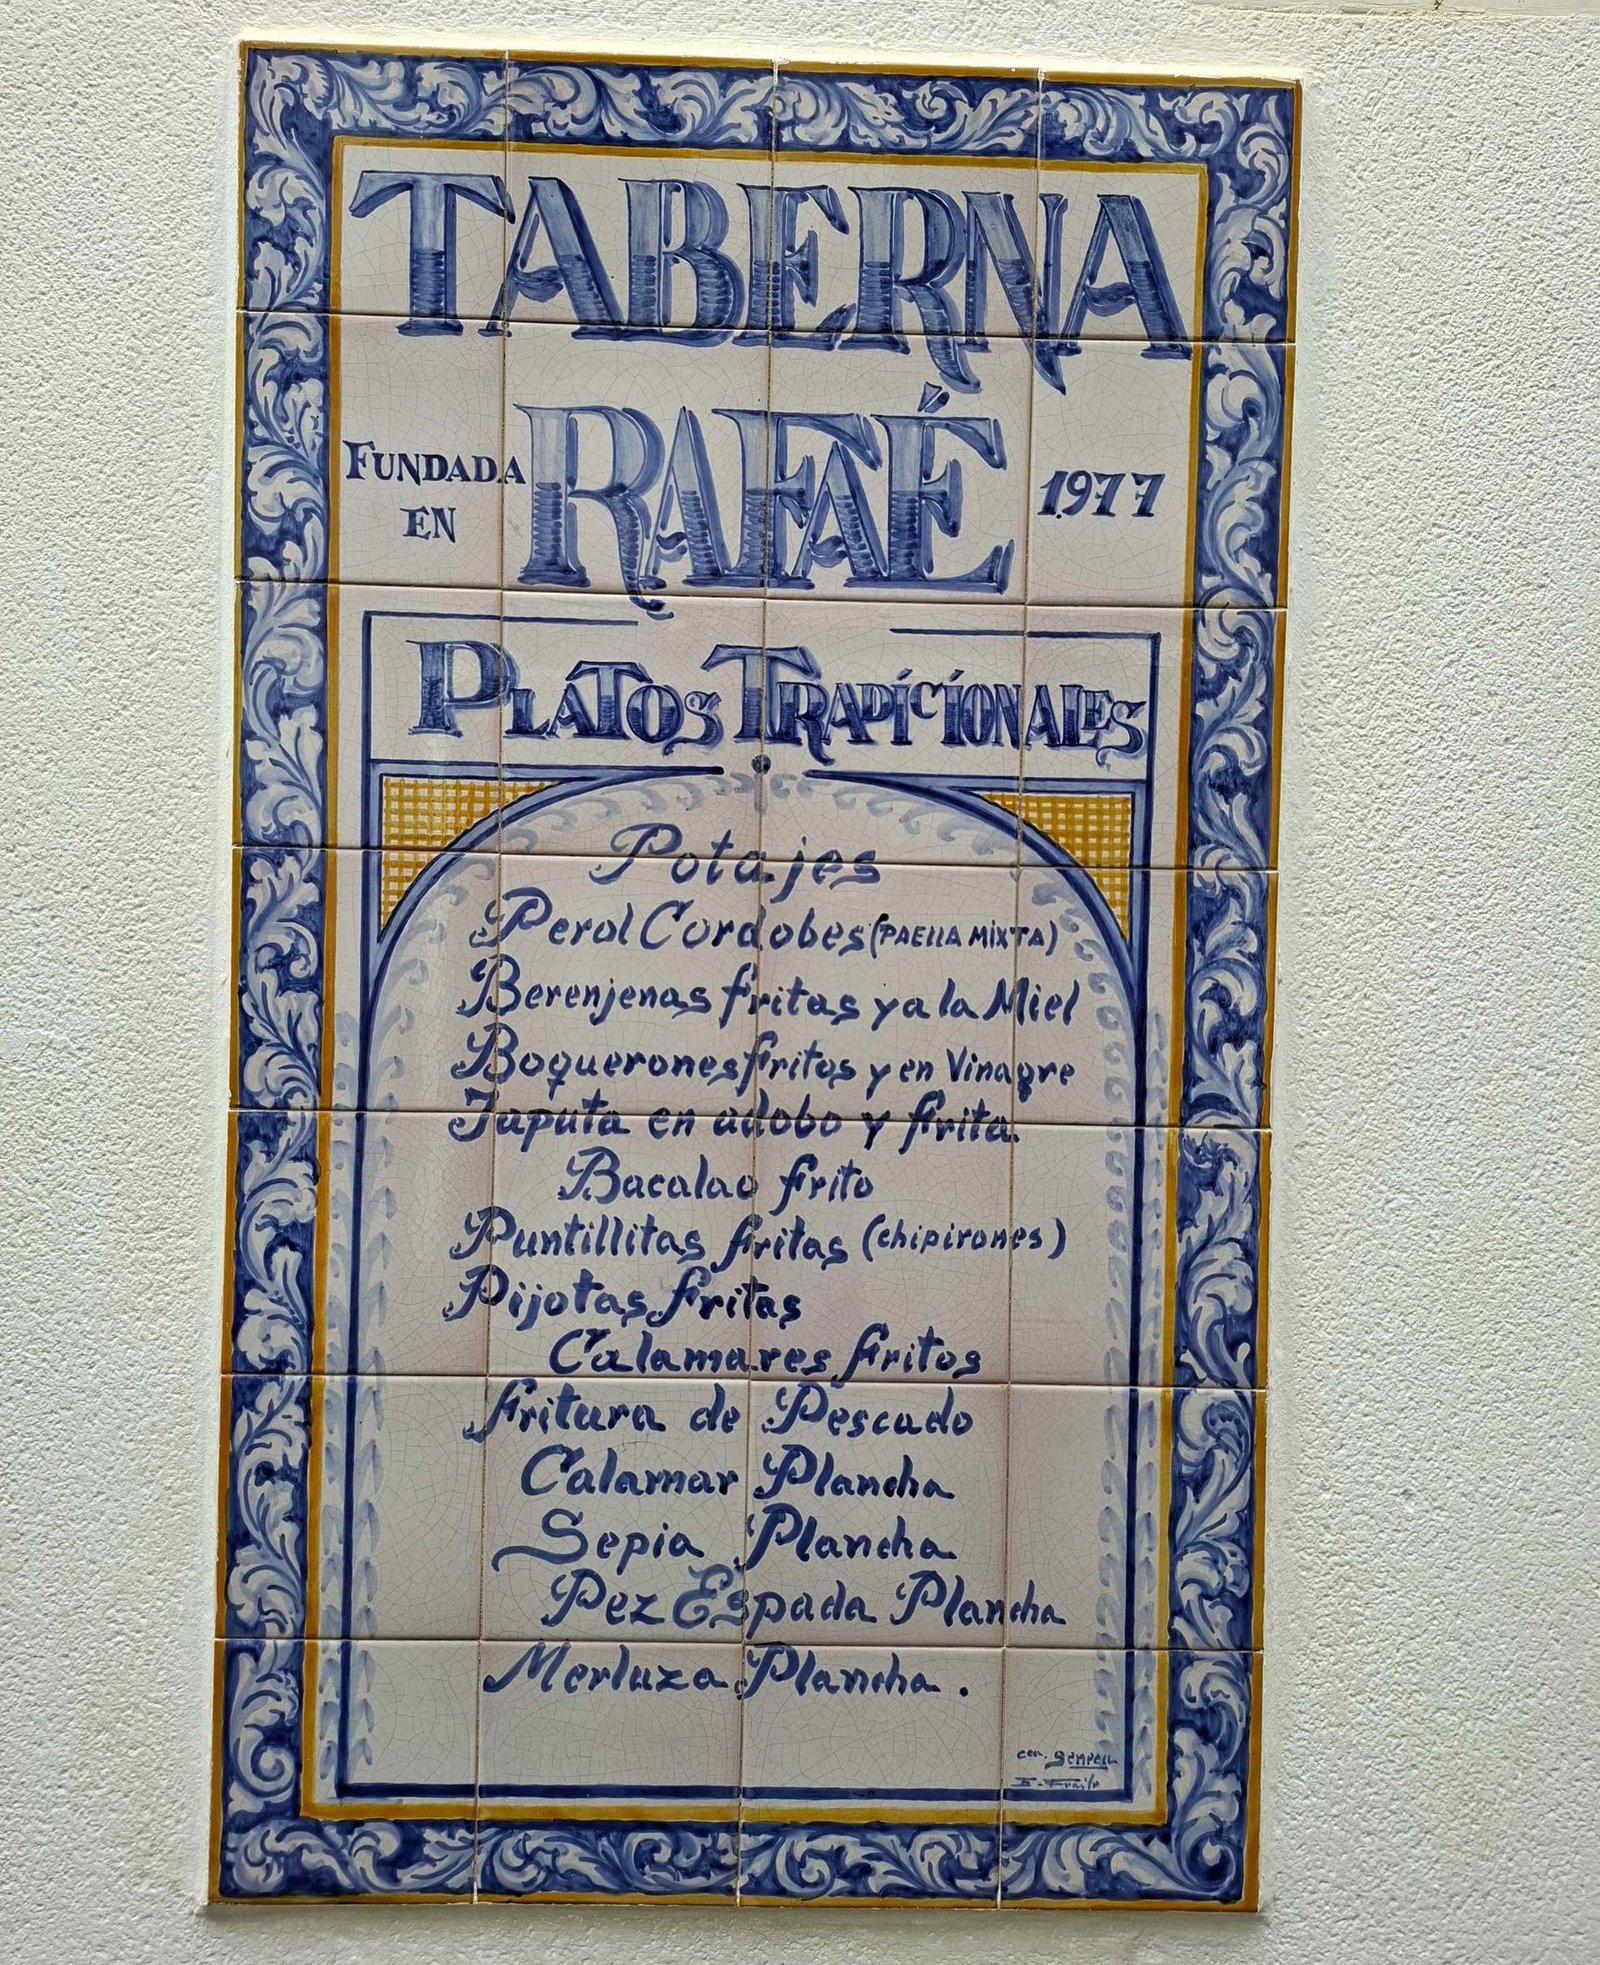 TABERNA
FUNDADA EN RAFAÉ 1.977
PLATOS TRADÍCÍONALES
Potajes
Perol Cordobes (PAELLA MIXTA)
Berenjenas fritas y a la Miel
Boquerones fritos y en Vinagre
Japuta en adobo y frita.
Bacalao frito
Puntillitas fritas (chipirones)
Pijotas fritas
Calamares fritos
Fritura de Pescado
Calamar Plancha
Sepia Plancha
Pez Espada Plancha
Merluza Plancha.